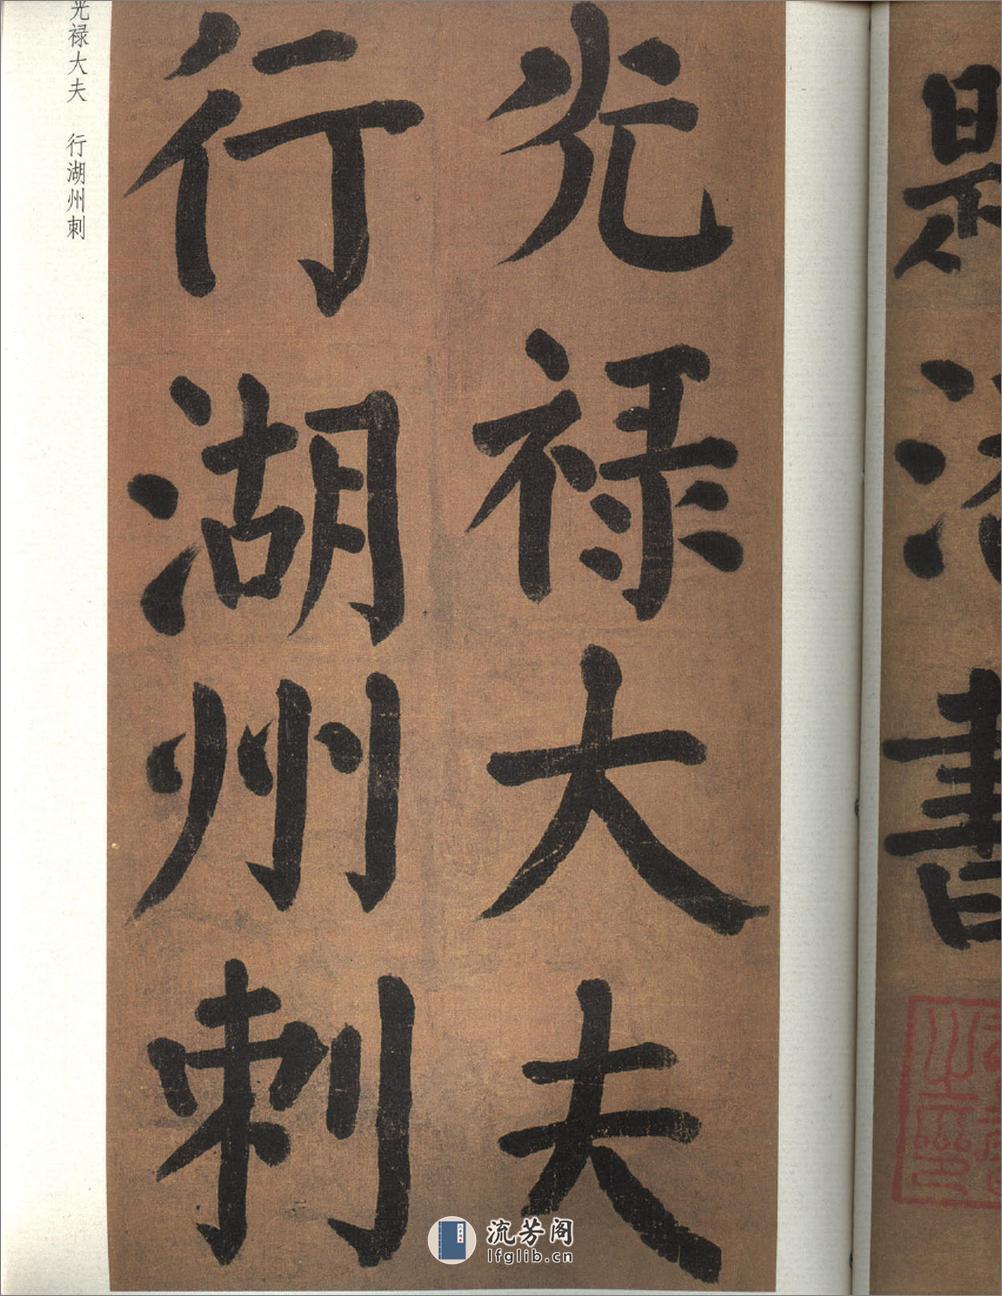 書
光禄大夫
行湖州刺
光禄大夫 行湖州刺
流芳阁
lfglib.cn